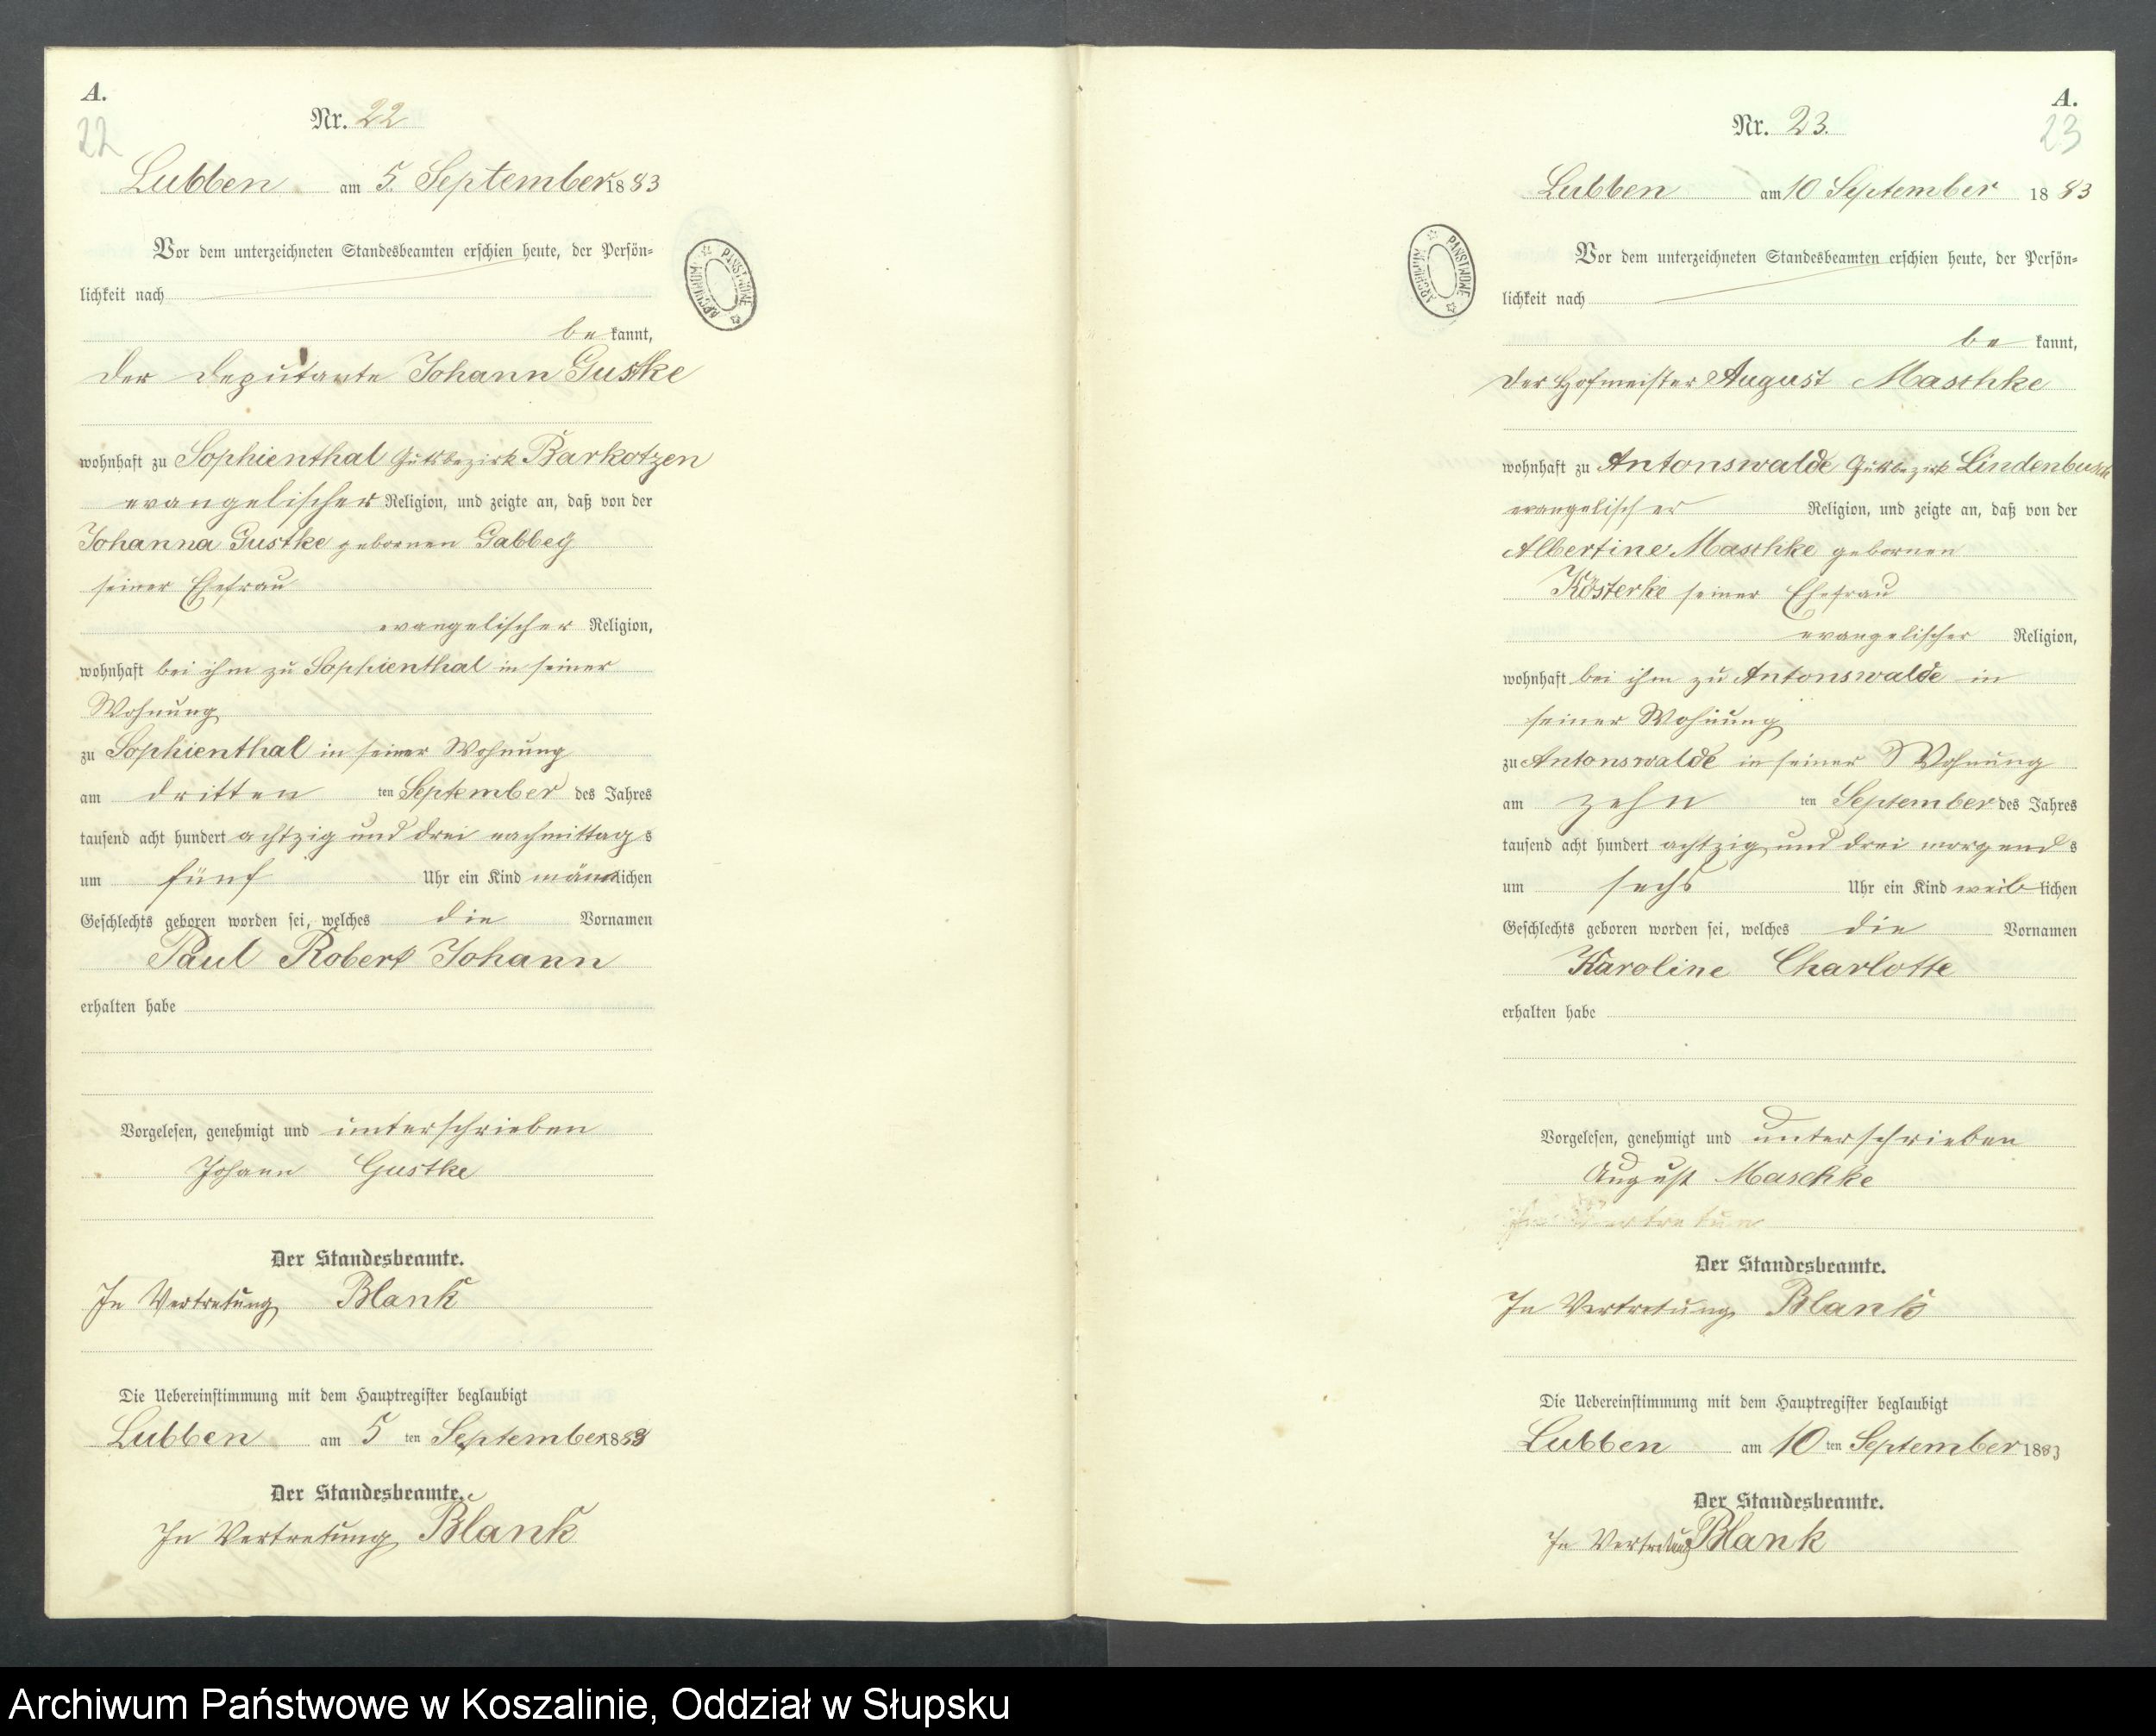 A.
22
Nr. 22
Lubben am 5. September 1883
Vor dem unterzeichneten Standesbeamten erschien heute, der Persön-
lichkeit nach
be kannt,
der Deputante Johann Gustke
wohnhaft zu Sophienthal Gutsbezirk Barkotzen
evangelischer Religion, und zeigte an, daß von der
Johanna Gustke gebornen Gabbey
seiner Ehefrau
evangelischer Religion,
wohnhaft bei ihm zu Sophienthal in seiner
Wohnung
zu Sophienthal in seiner Wohnung
am dritten ten September des Jahres
tausend acht hundert achtzig und drei nachmittag s
um fünf Uhr ein Kind männlichen
Geschlechts geboren worden sei, welches die Vornamen
Paul Robert Johann
erhalten habe
Vorgelesen, genehmigt und unterschrieben
Johann Gustke
Der Standesbeamte.
In Vertretung Blank
Die Uebereinstimmung mit dem Hauptregister beglaubigt
Lubben am 5 ten September 1883
Der Standesbeamte.
In Vertretung Blank
ARCHIWUM PAŃSTWOWE
A.
23
Nr. 23.
Lubben am 10 September 1883
Vor dem unterzeichneten Standesbeamten erschien heute, der Persön-
lichkeit nach
be kannt,
der Hofmeister August Maschke
wohnhaft zu Antonswalde Gutsbezirk Lindenbusch
evangelischer Religion, und zeigte an, daß von der
Albertine Maschke gebornen
Kösterke seiner Ehefrau
evangelischer Religion,
wohnhaft bei ihm zu Antonswalde in
seiner Wohnung
zu Antonswalde in seiner Wohnung
am zehn ten September des Jahres
tausend acht hundert achtzig und drei morgend s
um sechs Uhr ein Kind weib lichen
Geschlechts geboren worden sei, welches die Vornamen
Karoline Charlotte
erhalten habe
Vorgelesen, genehmigt und unterschrieben
August Maschke
Der Standesbeamte.
In Vertretung Blank
Die Uebereinstimmung mit dem Hauptregister beglaubigt
Lubben am 10 ten September 1883
Der Standesbeamte.
In Vertretung Blank
ARCHIWUM PAŃSTWOWE
Archiwum Państwowe w Koszalinie, Oddział w Słupsku